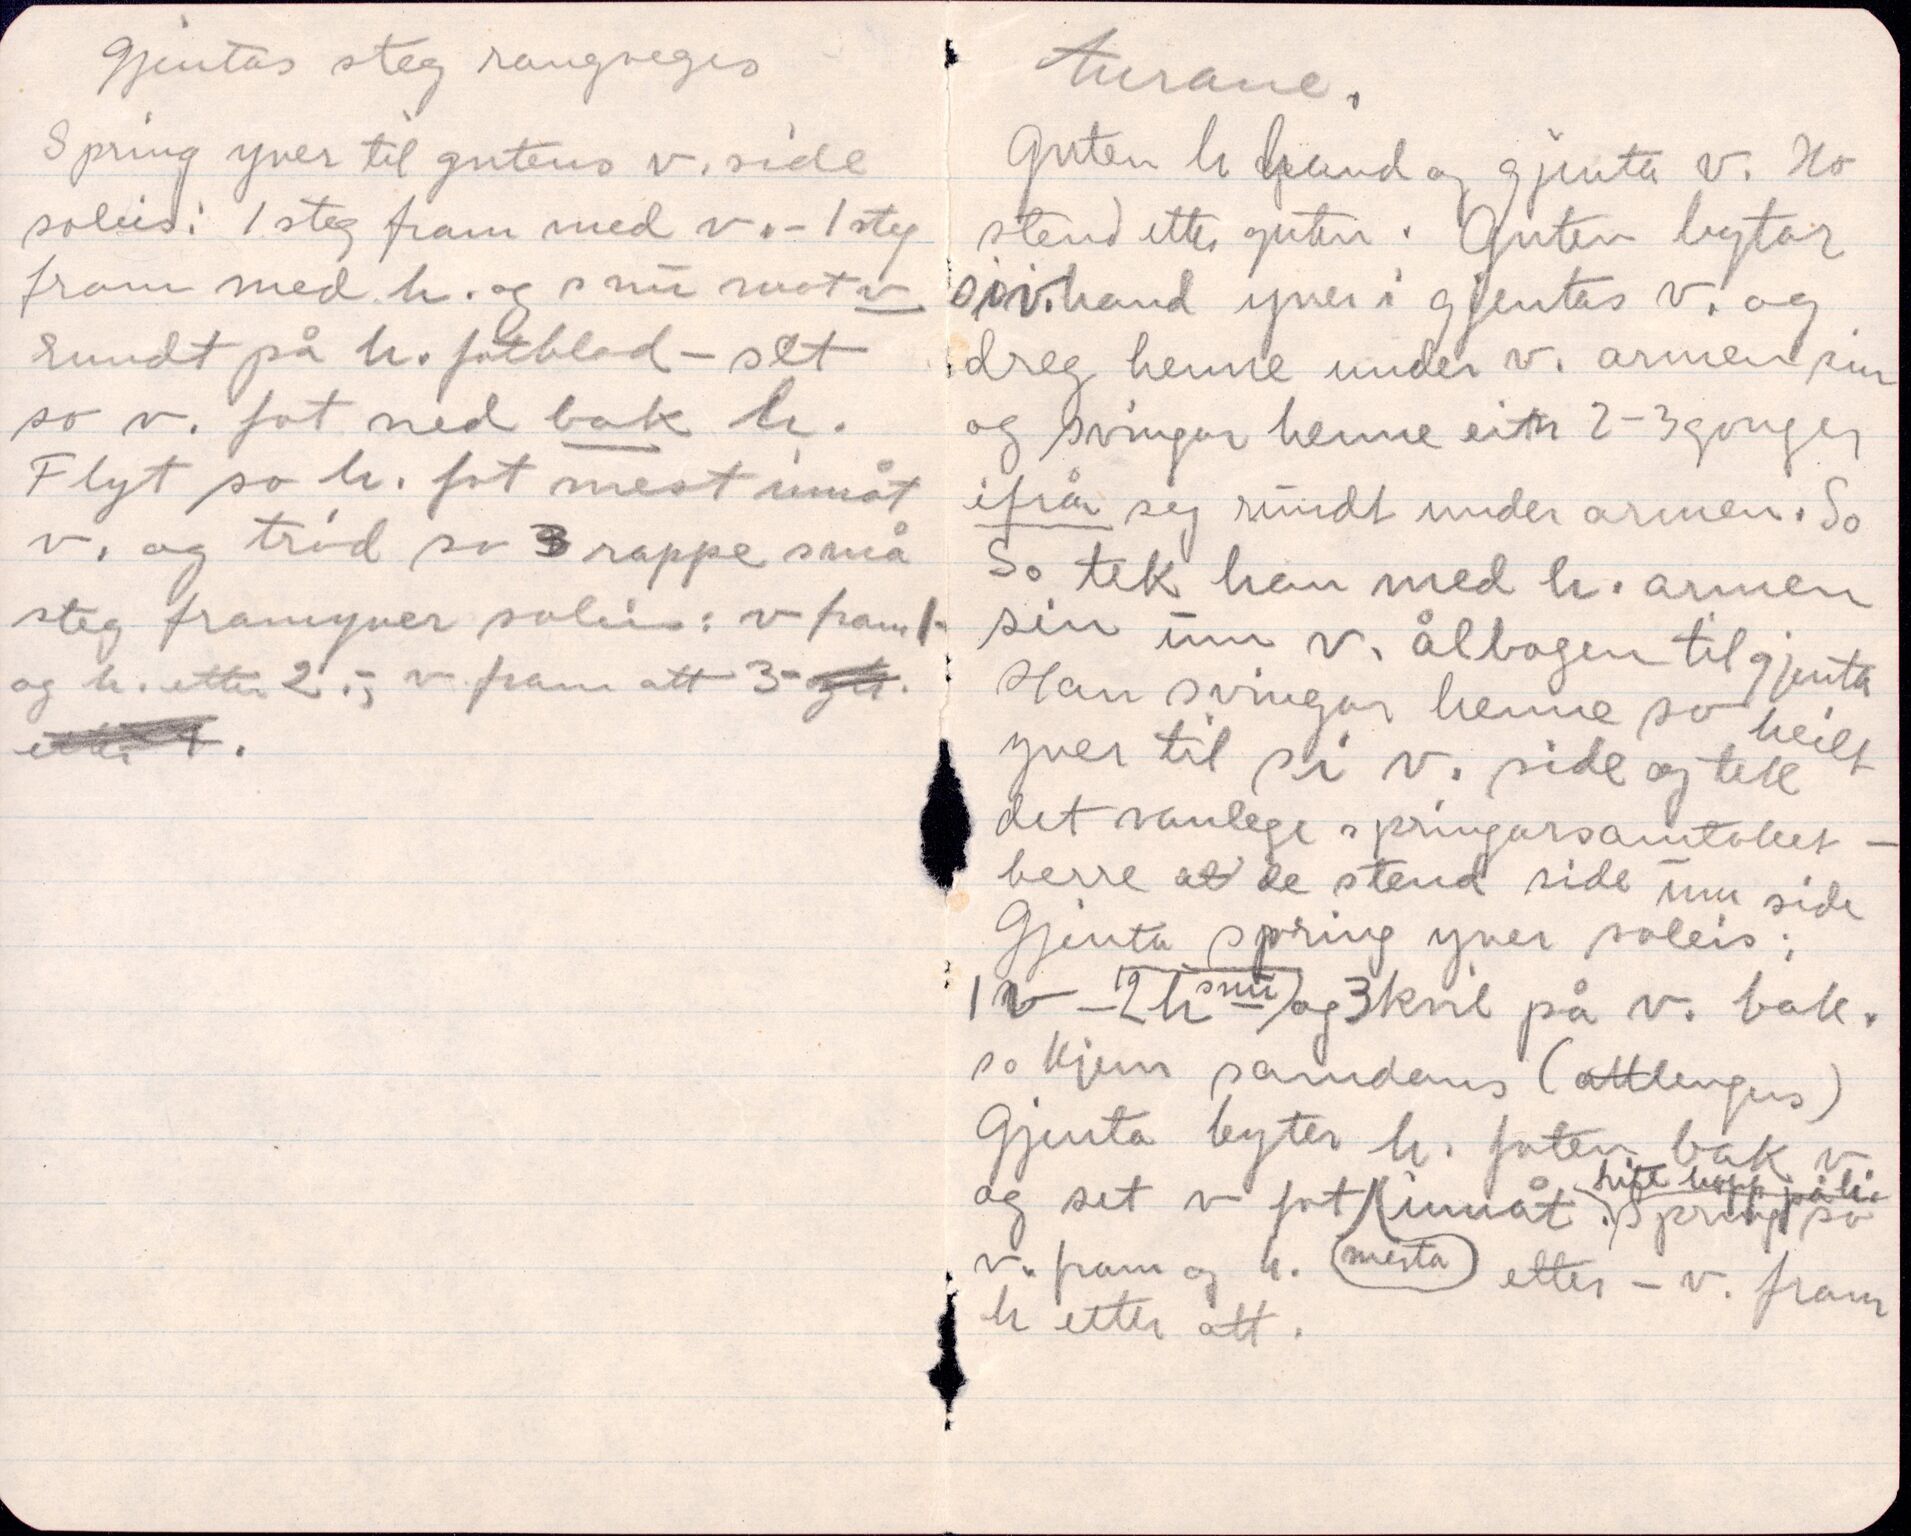 Gjentas steg rangveges
Spring yver til gutens v. side
soleis: 1 steg fram med v. - 1 steg
fram med h. og snu mot v
rundt på h. fotblad - set
so v. fot ned bak h.
Flyt so h. fot mest innåt
v. og tröd so 3 rappe små
steg framyver soleis: v fram 1-
og h. etter 2 -; v fram att 3 - og h.
etter 4.
turane.
Guten h hand og gjenta v. Ho
stend etter guten. Guten bytar
si v. hand yver i gjentas v. og
dreg henne under v. armen sin
og svingar henne ein 2-3 gonger
ifrån seg rundt under armen. So
So tek han med h. armen
sin um v. ålbogen til gjenta
Han svingar henne so heilt
yver til si v. side og tek
det vanlege springarsamtaket -
berre at de stend side um side
Gjenta spring yver soleis:
1 v - 2 h snu og 3 kvil på v. bak.
so kjem samdans (attlengus)
Gjenta byter h. foten bak v
og set v fot (innåt). lite hopp på h. Spring so
v. fram og h. mesta etter - v. fram
h etter att.